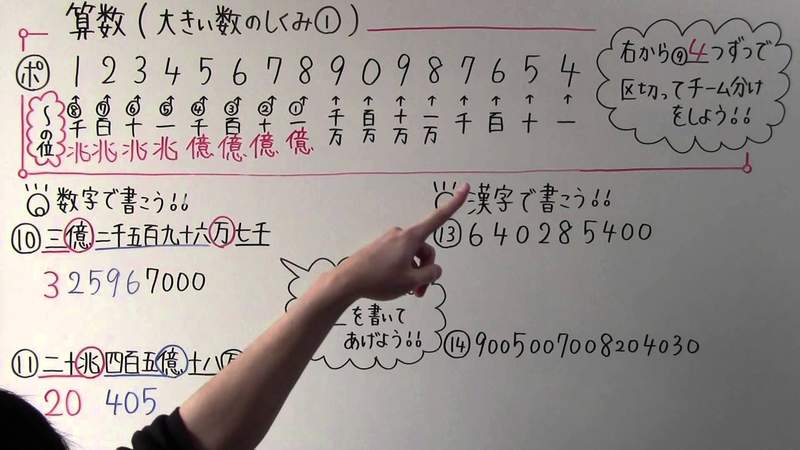 算数(大きい数のしくみ①)
右から⑨4つずつで
区切ってチーム分け
をしよう!!
ポ 1 2 3 4 5 6 7 8 9 0 9 8 7 6 5 4
~の位 ⑧千兆 ⑦百兆 ⑥十兆 ⑤一兆 ④千億 ③百億 ②十億 ①一億 千万 百万 十万 一万 千 百 十 一
数字で書こう!!
漢字で書こう!!
⑩三億二千五百九十六万七千
325967000
⑬640285400
を書いて
あげよう!!
⑪二十兆四百五億十八万
20 405
⑭9005007008204030